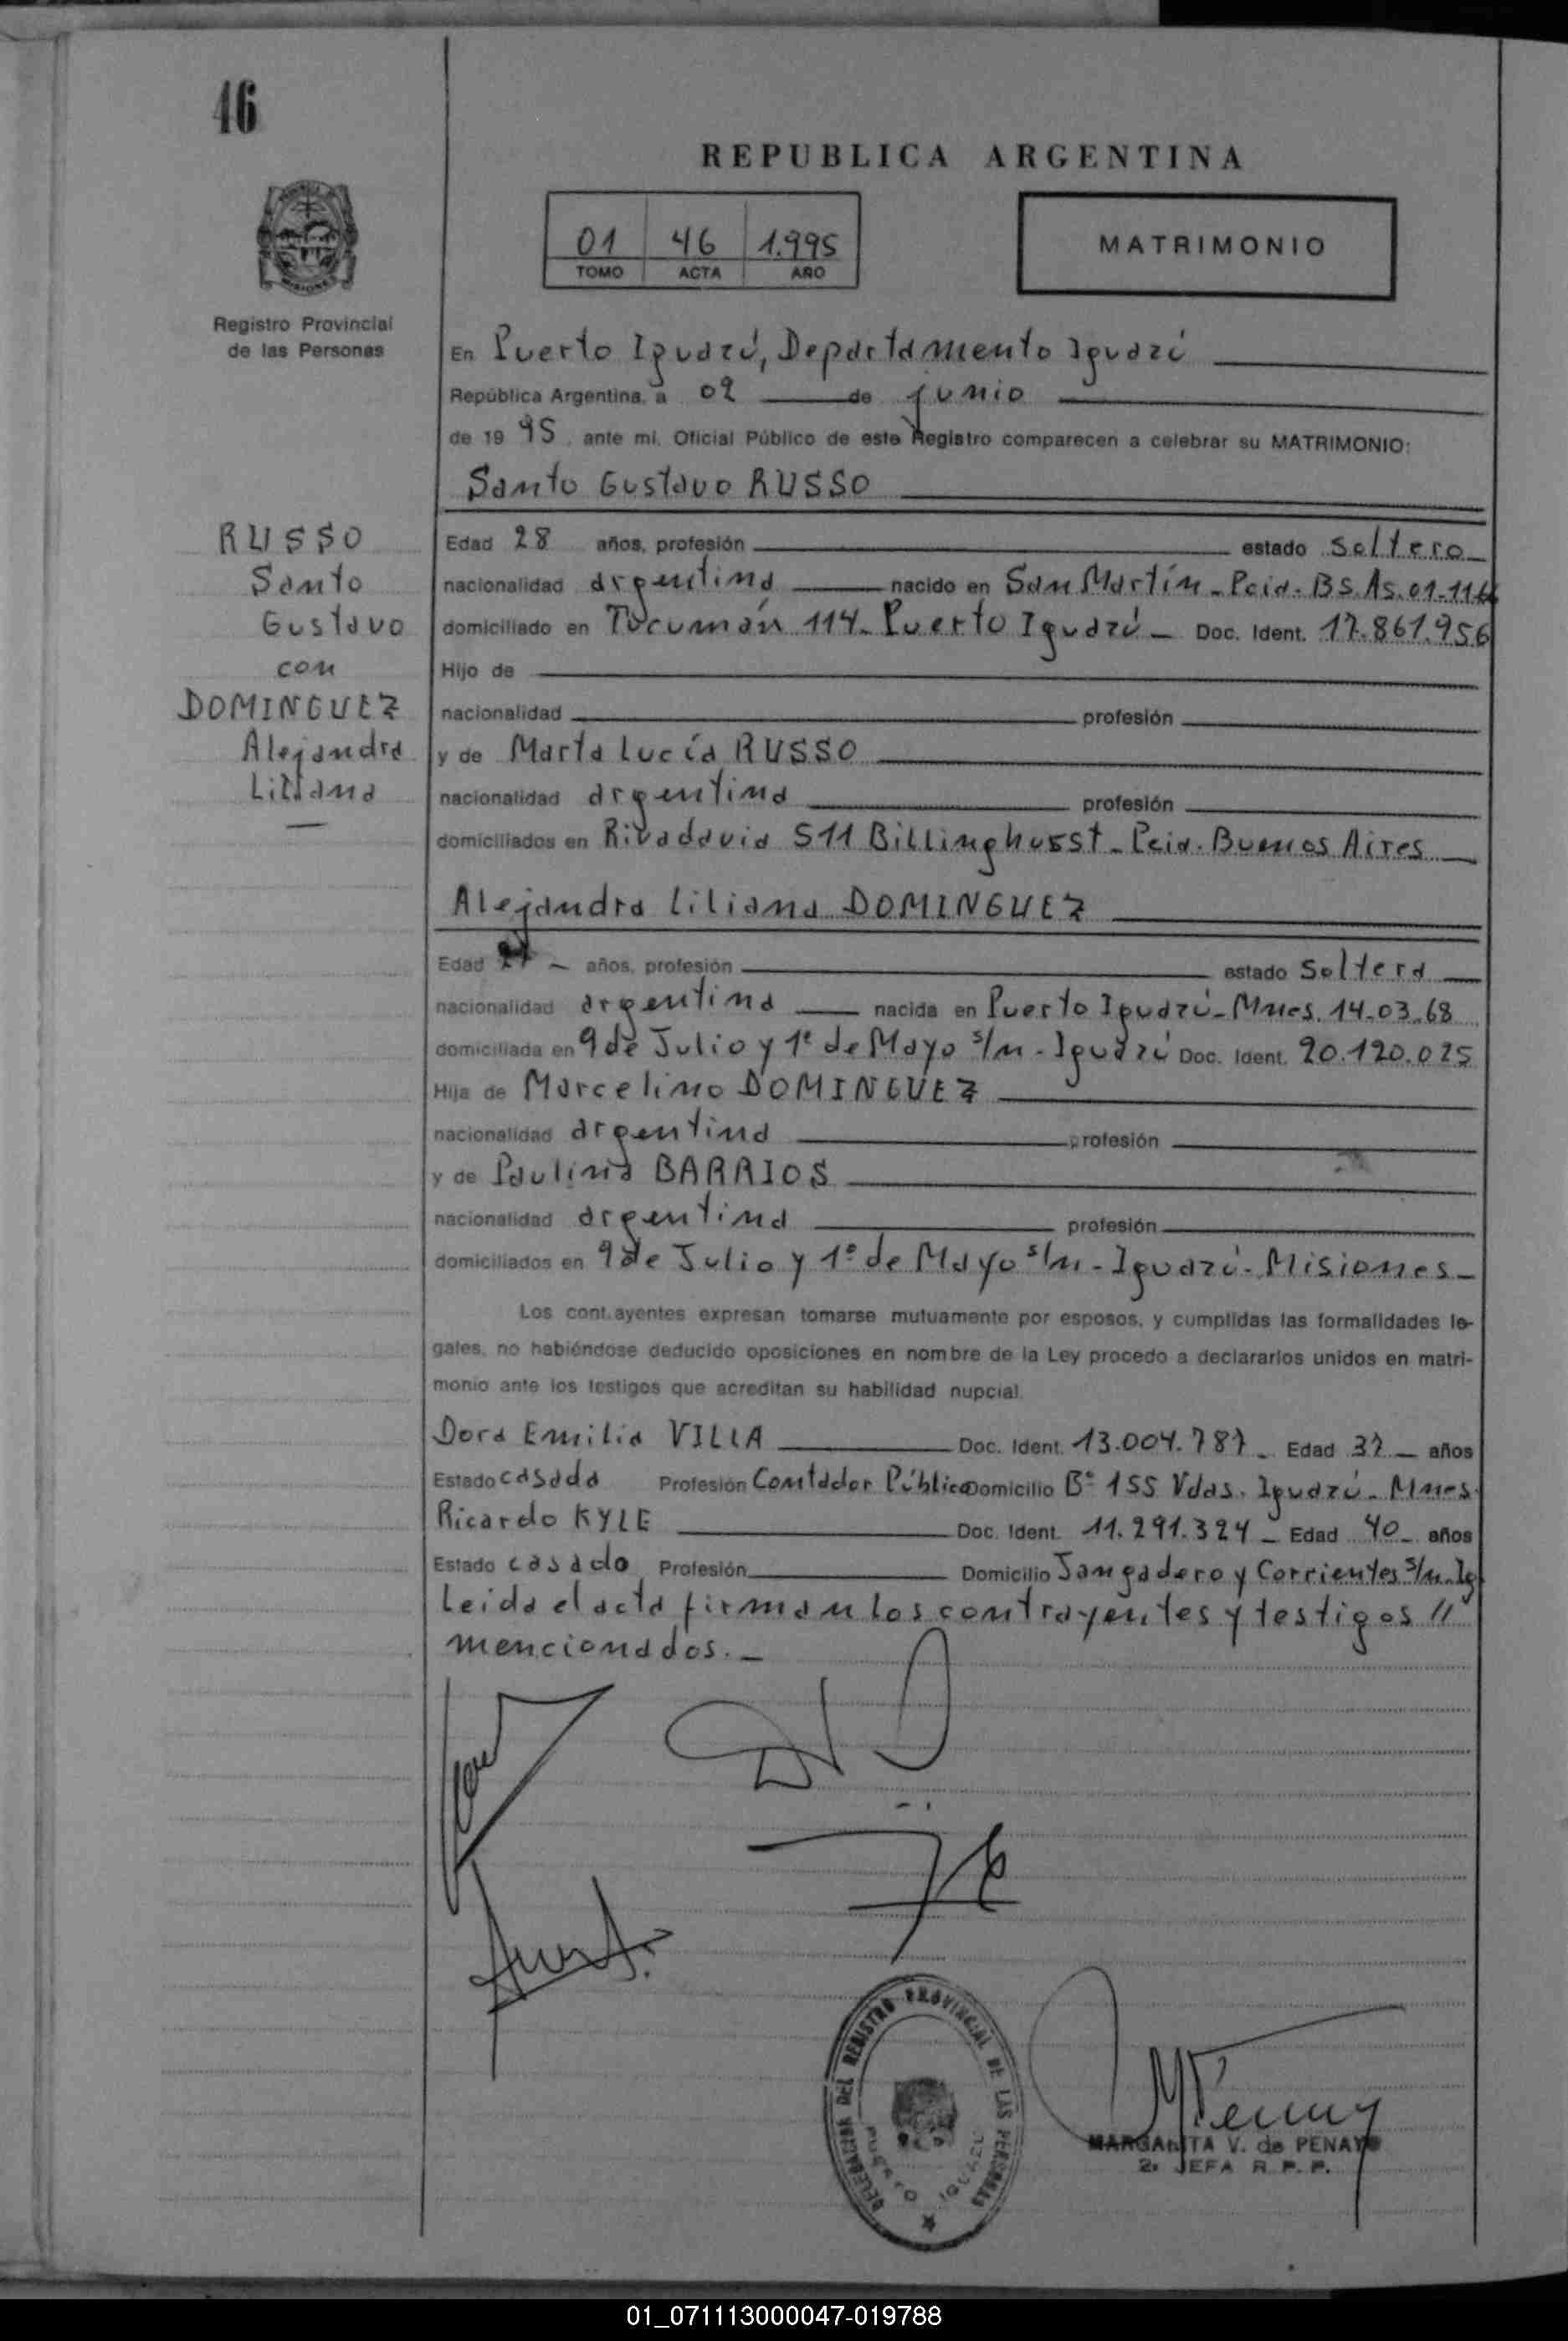 46
REPUBLICA ARGENTINA
01 46 1.995
TOMO ACTA AÑO
MATRIMONIO
Registro Provincial
de las Personas
En Puerto Iguazú, Departamento Iguazú
República Argentina, a 02 de junio
de 19 95, ante mí, Oficial Público de este Registro comparecen a celebrar su MATRIMONIO:
Santo Gustavo RUSSO
RUSSO
Santo
Gustavo
con
DOMINGUEZ
Alejandra
Liliana
Edad 28 años, profesión estado soltero
nacionalidad argentina nacido en San Martín - Pcia. BS.As. 01-11-66
domiciliado en Tucumán 114 - Puerto Iguazú - Doc. Ident. 17.861.956
Hijo de
nacionalidad profesión
y de Marta Lucía RUSSO
nacionalidad argentina profesión
domiciliados en Rivadavia 511 Billinghusst - Pcia. Buenos Aires
Alejandra Liliana DOMINGUEZ
Edad 27 - años, profesión estado soltera
nacionalidad argentina nacida en Puerto Iguazú - Mnes. 14-03-68
domiciliada en 9 de Julio y 1º de Mayo s/n - Iguazú Doc. Ident. 20.120.025
Hija de Marcelino DOMINGUEZ
nacionalidad argentina profesión
y de Paulina BARRIOS
nacionalidad argentina profesión
domiciliados en 9 de Julio y 1º de Mayo s/n - Iguazú - Misiones -
Los contrayentes expresan tomarse mutuamente por esposos, y cumplidas las formalidades le-
gales, no habiéndose deducido oposiciones en nombre de la Ley procedo a declararlos unidos en matri-
monio ante los testigos que acreditan su habilidad nupcial.
Dora Emilia VILLA Doc. Ident. 13.004.787 - Edad 37 - años
Estado casada Profesión Contador Público Domicilio Bº 155 Vdas. Iguazú - Mnes.
Ricardo KYLE Doc. Ident. 11.291.324 - Edad 40 - años
Estado casado Profesión Domicilio Jangadero y Corrientes s/n - Ig.
Leida el acta firman los contrayentes y testigos //
mencionados. -
DELEGACION DEL REGISTRO PROVINCIAL DE LAS PERSONAS
PUERTO IGUAZU
MARGARITA V. de PENAYO
2ª JEFA R. P. P.
01_071113000047-019788